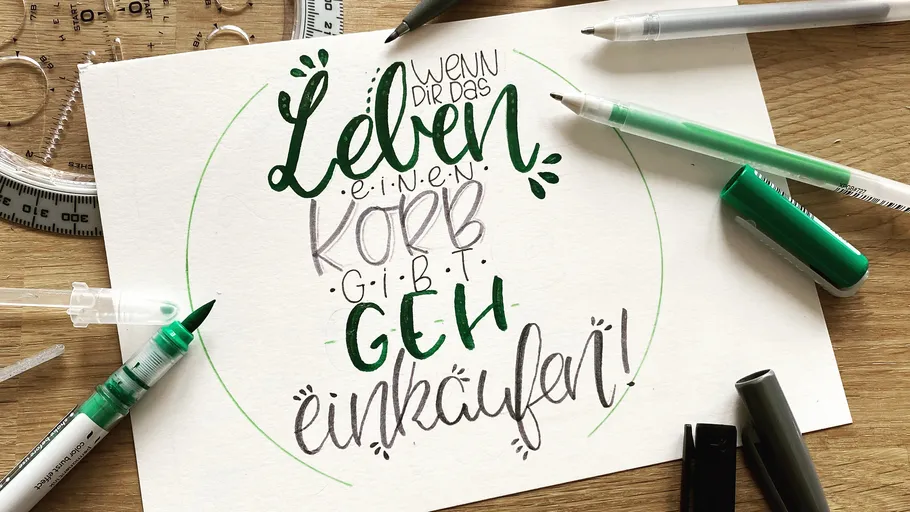 WENN
DIR DAS
Leben
·E·I·N·E·N·
KORB
·G·I·B·T·
GEH
einkaufen!
color burst effect